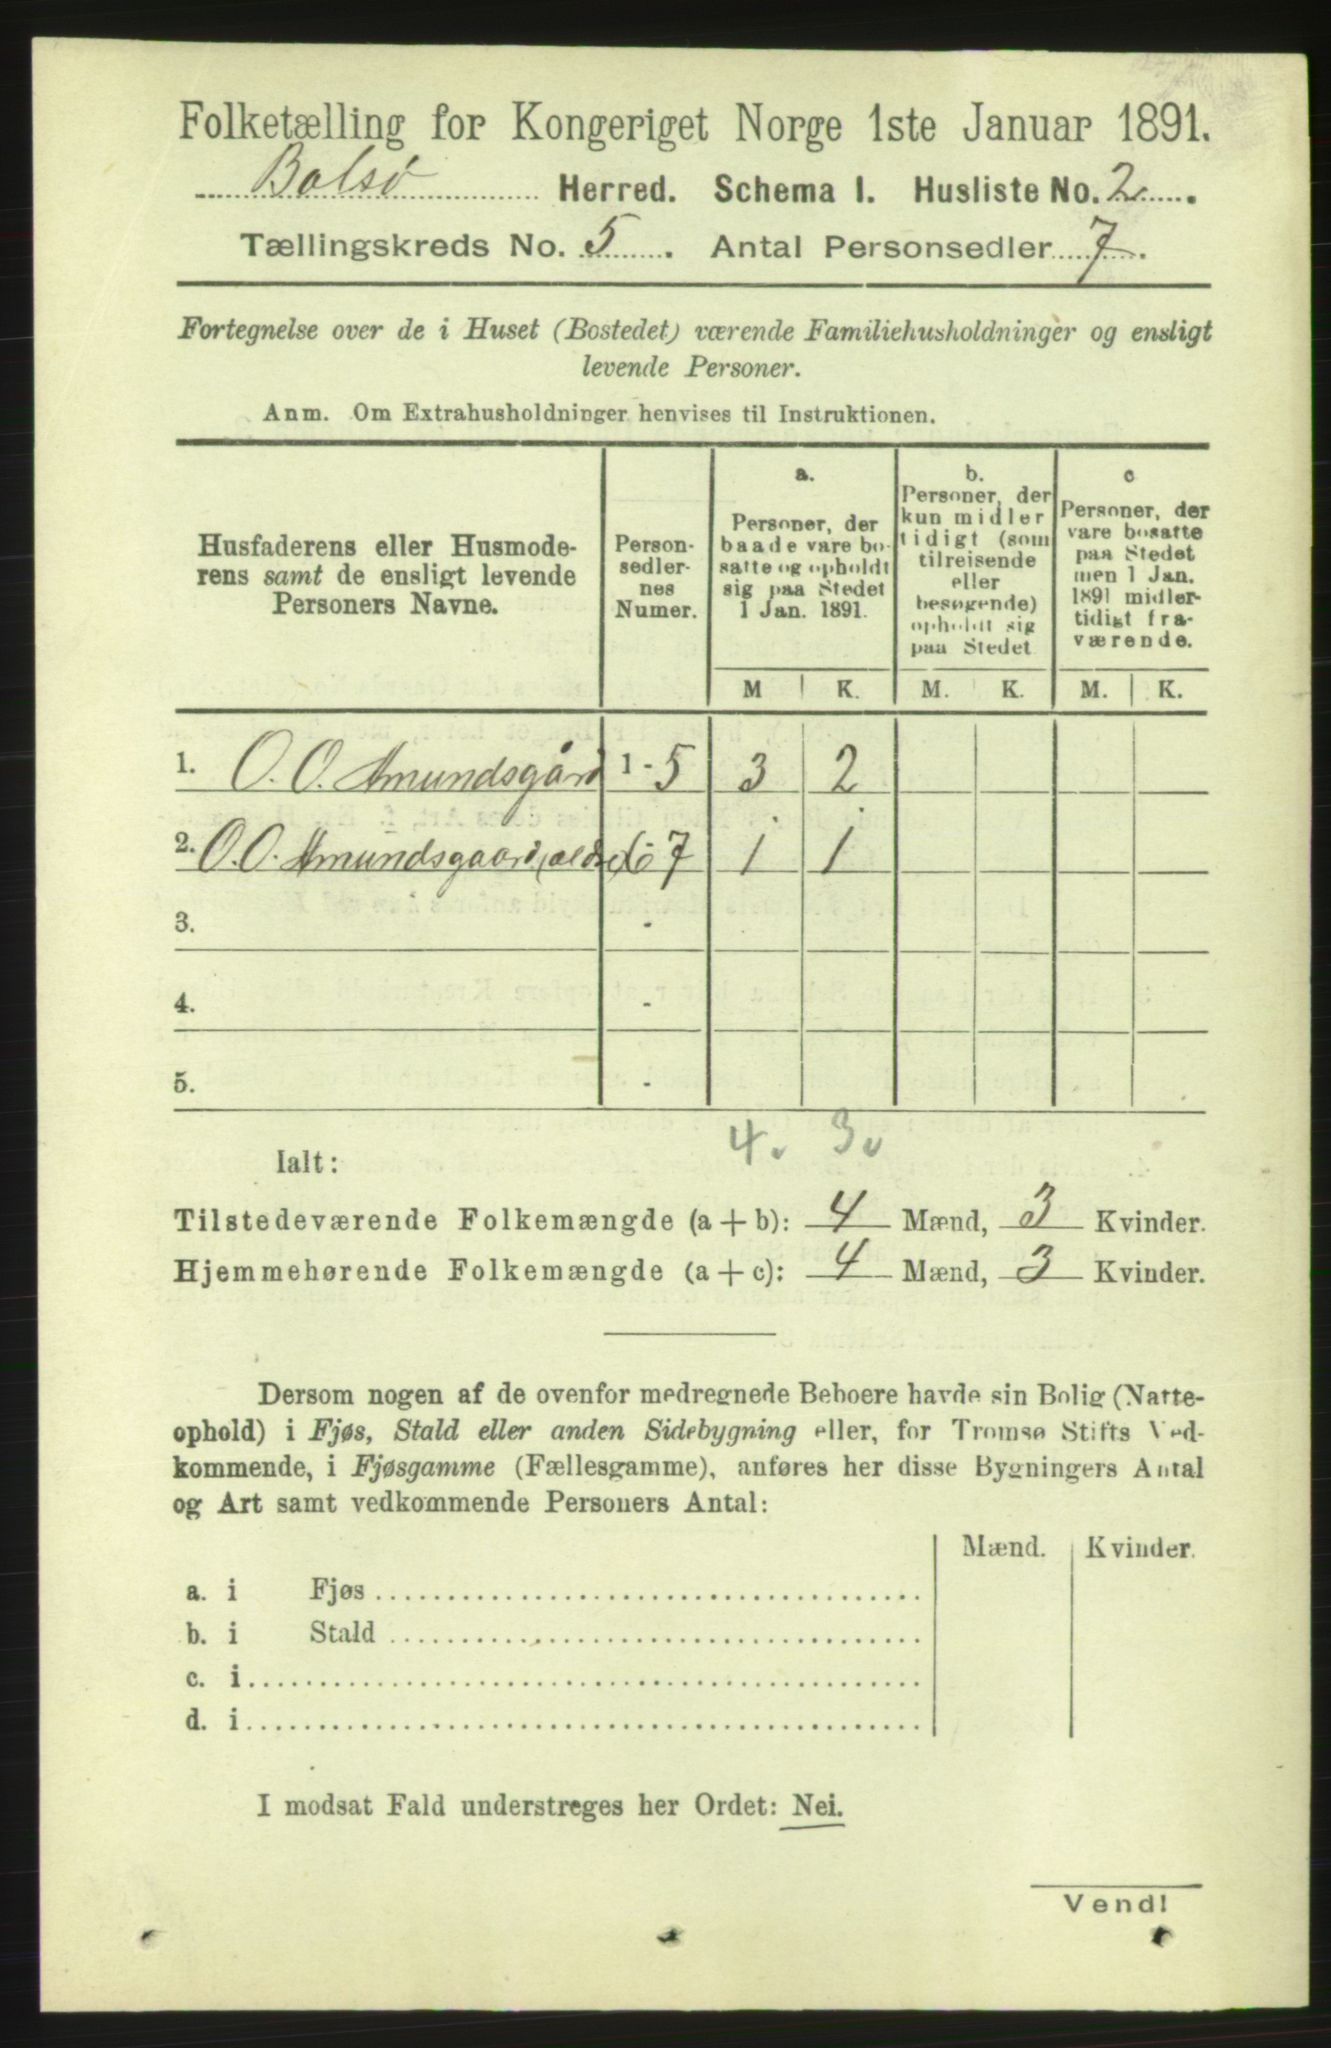 Folketælling for Kongeriget Norge 1ste Januar 1891.
Bolsø Herred. Schema I. Husliste No. 2.
Tællingskreds No. 5. Antal Personsedler 7.
Fortegnelse over de i Huset (Bostedet) værende Familiehusholdninger og ensligt
levende Personer.
Anm. Om Extrahusholdninger henvises til Instruktionen.
Husfaderens eller Husmode-
rens samt de ensligt levende
Personers Navne.
Person-
sedler-
nes
Numer.
a.
Personer, der
baade vare bo-
satte og opholdt
sig paa Stedet
1 Jan. 1891.
b.
Personer, der
kun midler
tidigt (som
tilreisende
eller
besøgende)
opholdt sig
paa Stedet
c
Personer, der
vare bosatte
paa Stedet
men 1 Jan.
1891 midler-
tidigt fra-
værende.
M K. M. K. M. K.
1. O. O. Amundsgård 1 - 5 3 2
2. O. O. Amundsgaard, 6-7 1 1
3. -
4. -
5. -
4. 3
Ialt:
Tilstedeværende Folkemængde (a + b): 4 Mænd, 3 Kvinder.
Hjemmehørende Folkemængde (a + c): 4 Mænd, 3 Kvinder.
Dersom nogen af de ovenfor medregnede Beboere havde sin Bolig (Natte-
ophold) i Fjøs, Stald eller anden Sidebygning eller, for Tromsø Stifts Ved-
kommende, i Fjøsgamme (Fællesgamme), anføres her disse Bygningers Antal
og Art samt vedkommende Personers Antal:
Mænd. Kvinder.
a. i Fjøs
b. i Stald
c. i
d. i
I modsat Fald understreges her Ordet: Nei.
Vend!